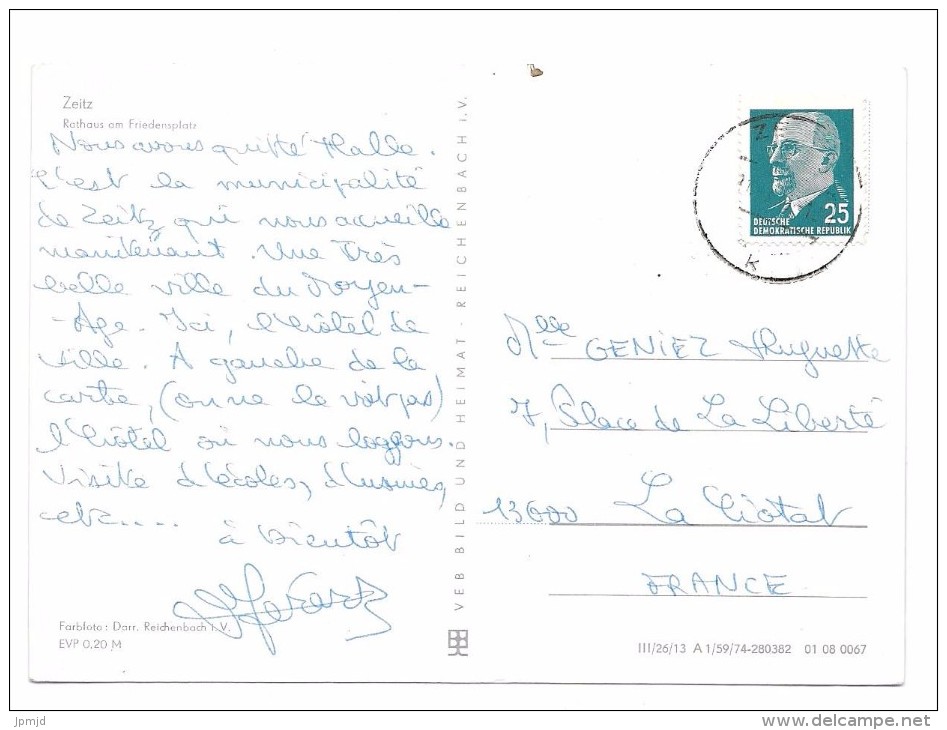 Zeitz
Rathaus am Friedensplatz
Nous avons quitté Halle.
C'est la municipalité
de Zeitz qui nous accueille
maintenant. Une très
belle ville du Moyen-
-Age. Ici, l'hôtel de
ville. A gauche de la
carte, (on ne le voit pas)
l'hôtel où nous loggons.
Visite d'écoles, d'usines,
etc.....
à bientôt
Farbfoto: Darr, Reichenbach i. V.
EVP 0,20 M
VEB BILD UND HEIMAT · REICHENBACH I.V.
25
DEUTSCHE
DEMOKRATISCHE REPUBLIK
Mlle GENIEZ Huguette
7, Place de La Liberté
13600 La Ciotat
FRANCE
III/26/13 A 1/59/74-280382 01 08 0067
Jpmjd
www.delcampe.net